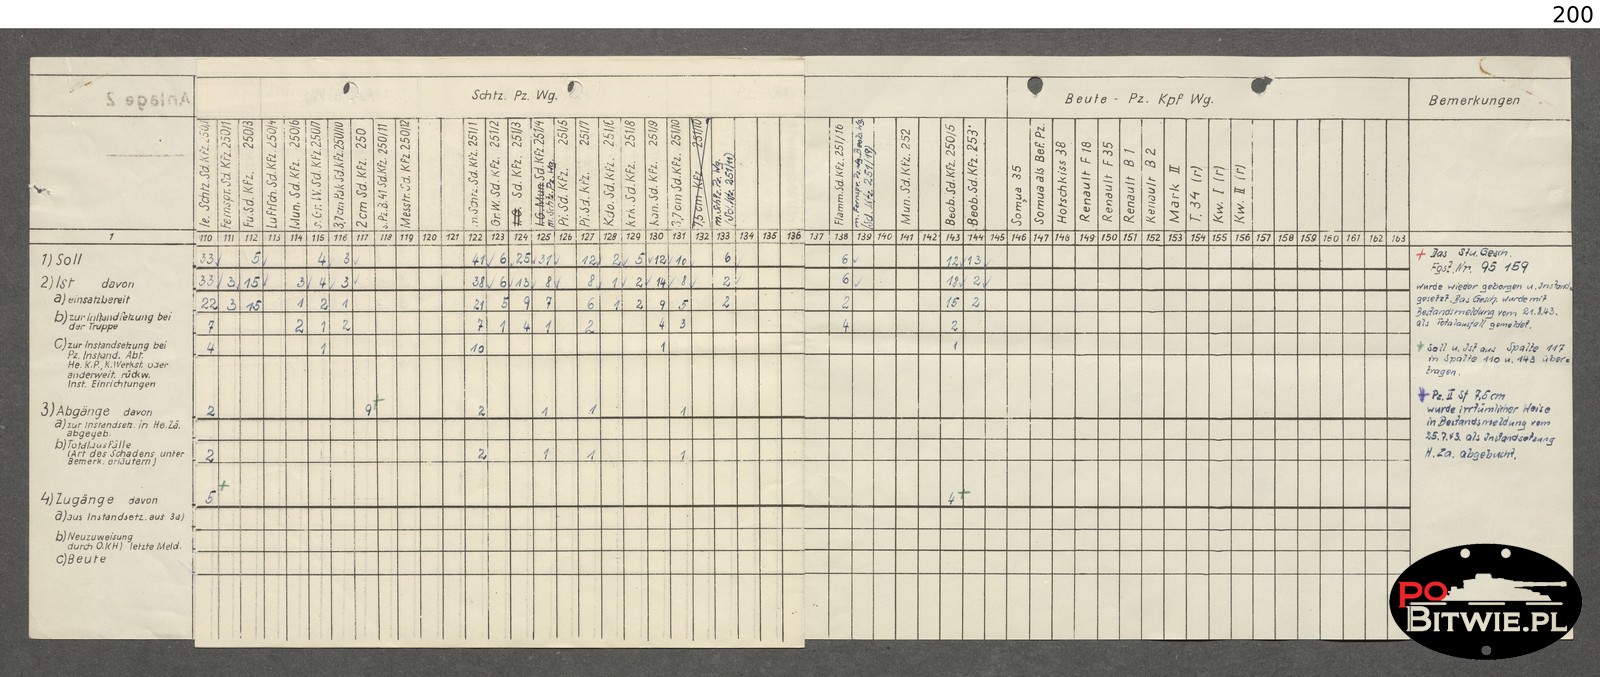 200
Anlage 2
Schtz. Pz. Wg.
Beute - Pz. Kpf Wg.
Bemerkungen
le. Schtz. Sd. Kfz. 250/1
Fernspr. Sd. Kfz. 250/1
Fu Sd. Kfz. 250/3
Luftfch. Sd. Kfz. 250/4
Mun. Sd. Kfz. 250/6
s. Gr. W. Sd. Kfz. 250/7
3,7 cm Pak Sd. Kfz. 250/10
2 cm Sd. Kfz. 250
s. Pz. B. 41 Sd. Kfz. 250/11
Messtr. Sd. Kfz 250/12
m. Schtz. Sd. Kfz. 251/1
Gr. W. Sd. Kfz. 251/2
I.G. Sd. Kfz. 251/3
I.G. Mun. Sd. Kfz. 251/4
m. Schtz. Pz. Wg.
Pi. Sd. Kfz. 251/5
Pi. Sd. Kfz. 251/7
Kdo. Sd. Kfz. 251/6
Krk. Sd. Kfz. 251/8
Kan. Sd. Kfz. 251/9
3,7 cm Sd. Kfz. 251/10
7,5 cm Kfz. 251/10
m. Schtz. Pz. Wg.
(Sd. Kfz. 251/11)
Flamm. Sd. Kfz. 251/16
m. Fernspr. Pz. Wg.
(Sd. Kfz. 251/19)
Mun. Sd. Kfz. 252
Beob. Sd. Kfz. 250/5
Beob. Sd. Kfz. 253
Somua 35
Somua als Bef. Pz.
Hotschkiss 38
Renault F 18
Renault F 35
Renault B 1
Renault B 2
Mark II
T. 34 (r)
Kw. I (r)
Kw. II (r)
1 110 111 112 113 114 115 116 117 118 119 120 121 122 123 124 125 126 127 128 129 130 131 132 133 134 135 136 137 138 139 140 141 142 143 144 145 146 147 148 149 150 151 152 153 154 155 156 157 158 159 160 161 162 163
1) Soll 33 5 4 3 41 6 25 31 12 2 5 12 10 6 6 12 13
2) Ist davon 33 3 15 3 4 3 38 6 13 8 8 1 2 14 8 2 6 18 2
a) einsatzbereit 22 3 15 1 2 1 21 5 9 7 6 1 2 9 5 2 2 15 2
b) zur Instandsetzung bei
der Truppe 7 2 1 2 7 1 4 1 2 4 3 4 2
c) zur Instandsetzung bei 4 1 10 1 1
Pz. Instand. Abt.
He. K.P., K. Werkst. oder
anderweit. rückw.
Inst. Einrichtungen
3) Abgänge davon 2 9+ 2 1 1 1
a) zur Instandsetz. in He. Za.
abgegeb.
b) Totalausfälle
(Art des Schadens unter 2 2 1 1 1
Bemerk. erläutern)
4) Zugänge davon 5+ 4+
a) aus Instandsetz. aus 3a)
b) Neuzuweisung
durch O.K.H) letzte Meld.
c) Beute
+ Das Stu. Gesch.
Fgst. Nr. 95 159
wurde wieder geborgen u. Instand-
gesetzt. Das Gesch. wurde mit
Bestandsmeldung vom 21.8.43.
als Totalausfall gemeldet.
+ Soll u. Ist aus Spalte 117
in Spalte 110 u. 143 über-
tragen.
+ Pz. II Sf 7,5 cm
wurde irrtümlicher Weise
in Bestandsmeldung vom
25.7.43. als Instandsetzung
H. Za. abgebucht.
PO
BITWIE.PL